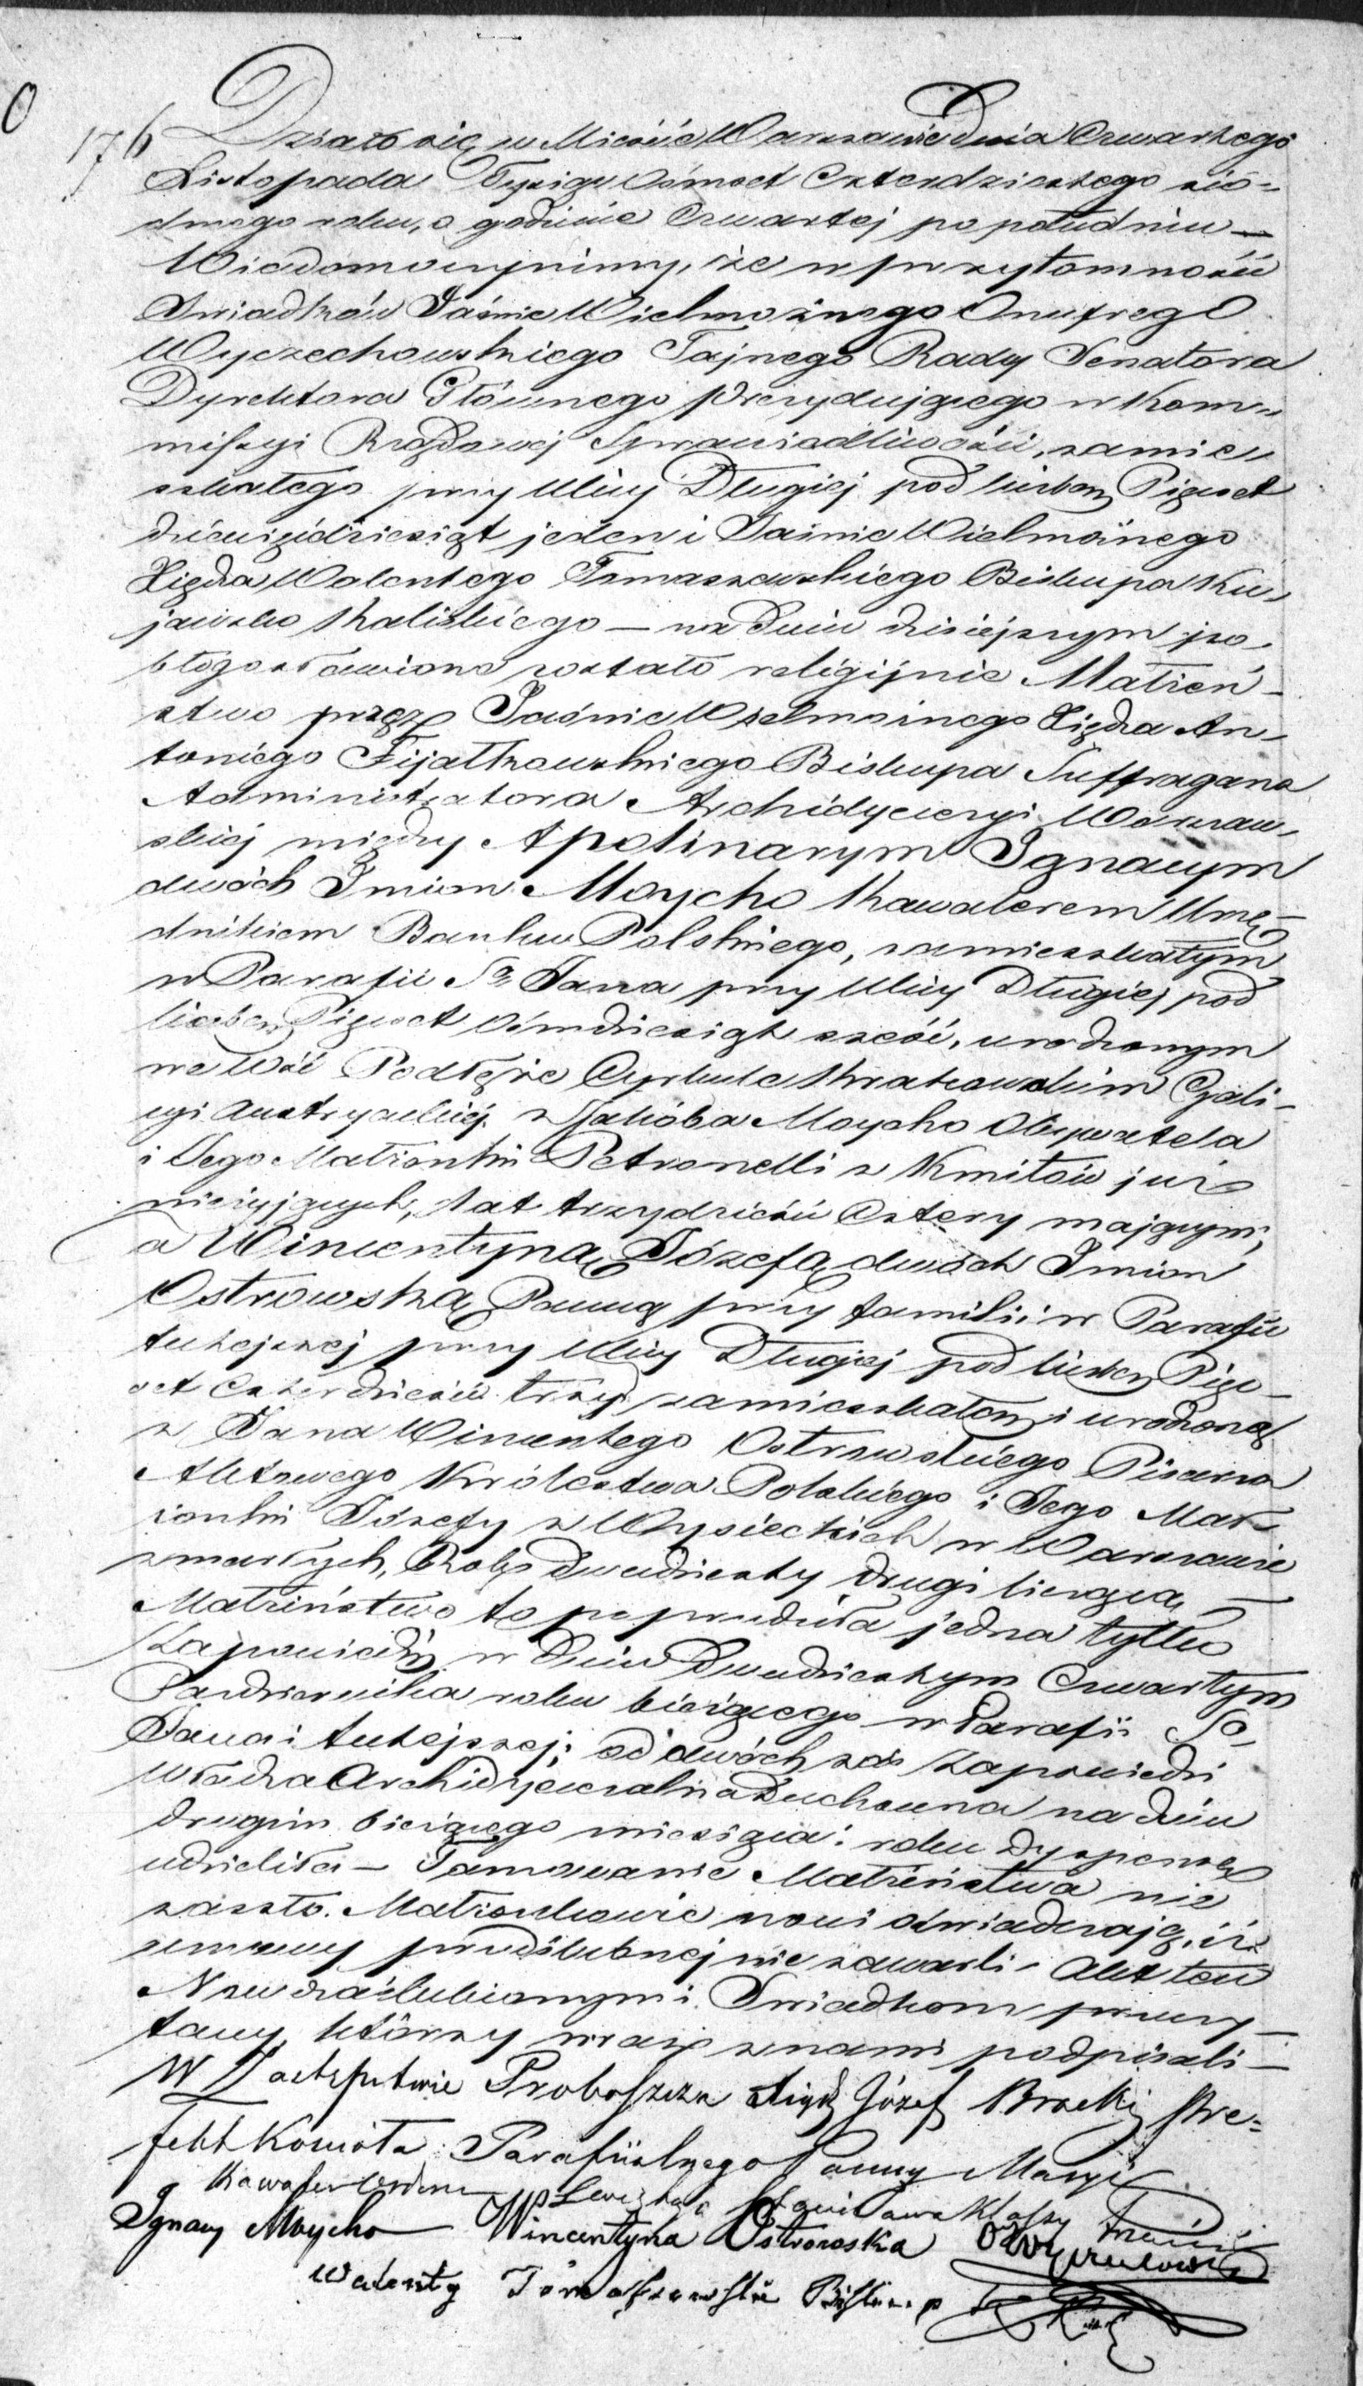 176 Działo się w Mieście Warszawie Dnia Czwartego
Listopada Tysiąc Ośmset Czterdziestego sió-
dmego roku, o godzinie Czwartej po południu —
Wiadomo czynimy, że w przytomności
Świadków Jaśnie Wielmożnego Onufrego
Wyczechowskiego Tajnego Rady Senatora
Dyrektora Głównego Prezydującego w Kom-
missyi Rządowej Sprawiedliwości, zamie-
szkałego przy Ulicy Długiej pod liczbą Pięćset
dziewięćdziesiąt jeden i Jaśnie Wielmożnego
Xiędza Walentego Tomaszewskiego Biskupa Ku-
jawsko Kaliskiego — na dniu dzisiejszym po-
błogosławione zostało religijnie Małżeń-
stwo przez Jaśnie Wielmożnego Xiędza An-
toniego Fijałkowskiego Biskupa Suffragana
Administratora Archidyecezyi Warszaw-
skiej między Apolinarym Ignacym
dwóch Imion Moycho Kawalerem Urzę-
dnikiem Banku Polskiego, zamieszkałym
w Parafii Sgo Jana przy Ulicy Długiej pod
liczbą Pięćset Ośmdziesiąt sześć, urodzonym
we Wsi Podłęże Cyrkule Krakowskim Gali-
cyi Austryackiej z Jakóba Moycho Obywatela
i Jego Małżonki Petronelli z Kmitów już
nieżyjących, lat trzydzieści Cztery mającym,
a Wincentyną Józefą dwóch Imion
Ostrowską Panną przy familii w Parafii
tutejszej przy Ulicy Długiej pod liczbą Pięć-
set Czterdzieści trzy zamieszkałą i urodzoną
z Jana Wincentego Ostrowskiego Pisarza
Aktowego Królestwa Polskiego i Jego Mał-
żonki Józefy z Wysieckich w Warszawie
zmarłych, Rok Dwudziesty drugi liczącą —
Małżeństwo to poprzedziła jedna tylko
Zapowiedź w Dniu Dwudziestym Czwartym
Października roku bieżącego w Parafii Sgo
Jana i tutejszej; od dwóch zaś Zapowiedzi
Władza Archidyecezalna Duchowna na dniu
drugim bieżącego miesiąca i roku dyspensę
udzieliła — Tamowanie Małżeństwa nie
zaszło. Małżonkowie nowi oświadczają, iż
umowy przedślubnej nie zawarli — Akt ten
Nowozaślubionym i Świadkom przeczy-
tany, którzy wraz z nami podpisali —
W Zastępstwie Proboszcza Xiądz Józef Brzeki Pre-
fekt Kościoła Parafialnego Panny Maryi
Kawaler Orderu Stanisława Klassy
Ignacy Moycho Wincentyna Ostrowska OWyczechowski
Walenty Tomaszewski Biskup